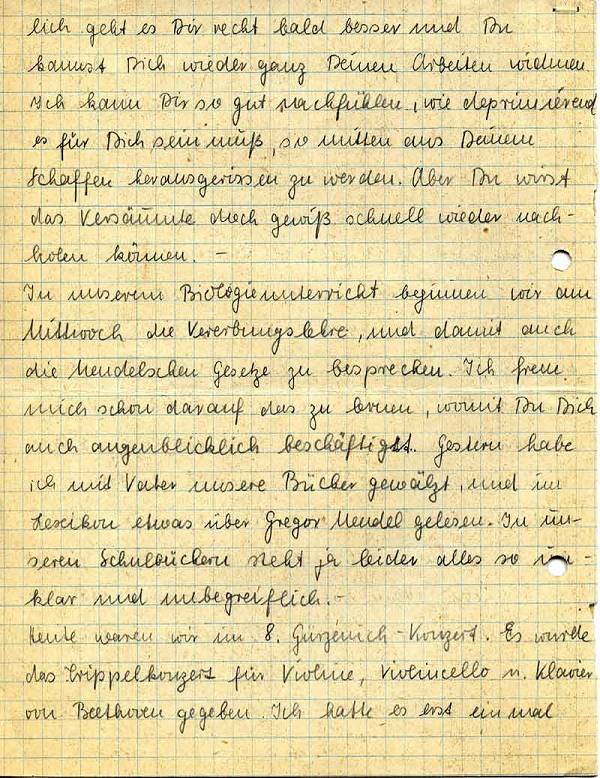 lich geht es Dir recht bald besser und Du
kannst Dich wieder ganz Deinen Arbeiten widmen.
Ich kann Dir so gut nachfühlen, wie deprimierend
es für Dich sein muß, so mitten aus Deinem
Schaffen herausgerissen zu werden. Aber Du wirst
das Versäumte doch gewiß schnell wieder nach-
holen können. –
In unserem Biologieunterricht beginnen wir am
Mittwoch die Vererbungslehre, und damit auch
die Mendelschen Gesetze zu besprechen. Ich freue
mich schon darauf das zu lernen, womit Du Dich
auch augenblicklich beschäftigst. Gestern habe
ich mit Vater unsere Bücher gewälzt, und im
Lexikon etwas über Gregor Mendel gelesen. In un-
seren Schulbüchern steht ja leider alles so un-
klar und unbegreiflich. –
Heute waren wir im 8. Gürzenich-Konzert. Es wurde
das Trippelkonzert für Violine, Violincello u. Klavier
von Beethoven gegeben. Ich hatte es erst einmal